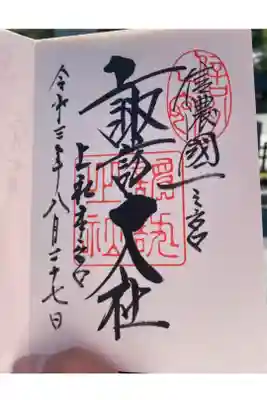 信濃國一之宮
諏訪大社
上社本宮
令和三年八月二十七日